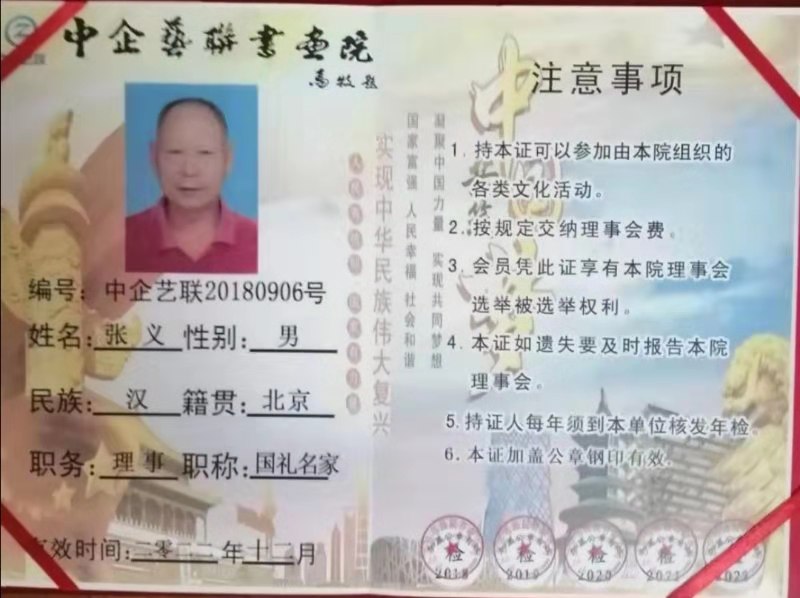 中企艺联书画院
编号：中企艺联20180906号
姓名：张 义 性别：男
民族：汉 籍贯：北京
职务：理事 职称：国礼名家
有效时间：二零二二年十二月
实现中华民族伟大复兴
国家富强 人民幸福 社会和谐
凝聚中国力量 实现共同梦想
中国梦
注意事项
1. 持本证可以参加由本院组织的
各类文化活动。
2. 按规定交纳理事会费。
3. 会员凭此证享有本院理事会
选举被选举权利。
4. 本证如遗失要及时报告本院
理事会。
5. 持证人每年须到本单位核发年检。
6. 本证加盖公章钢印有效.
检 2018
检 2019
检 2020
检 2021
检